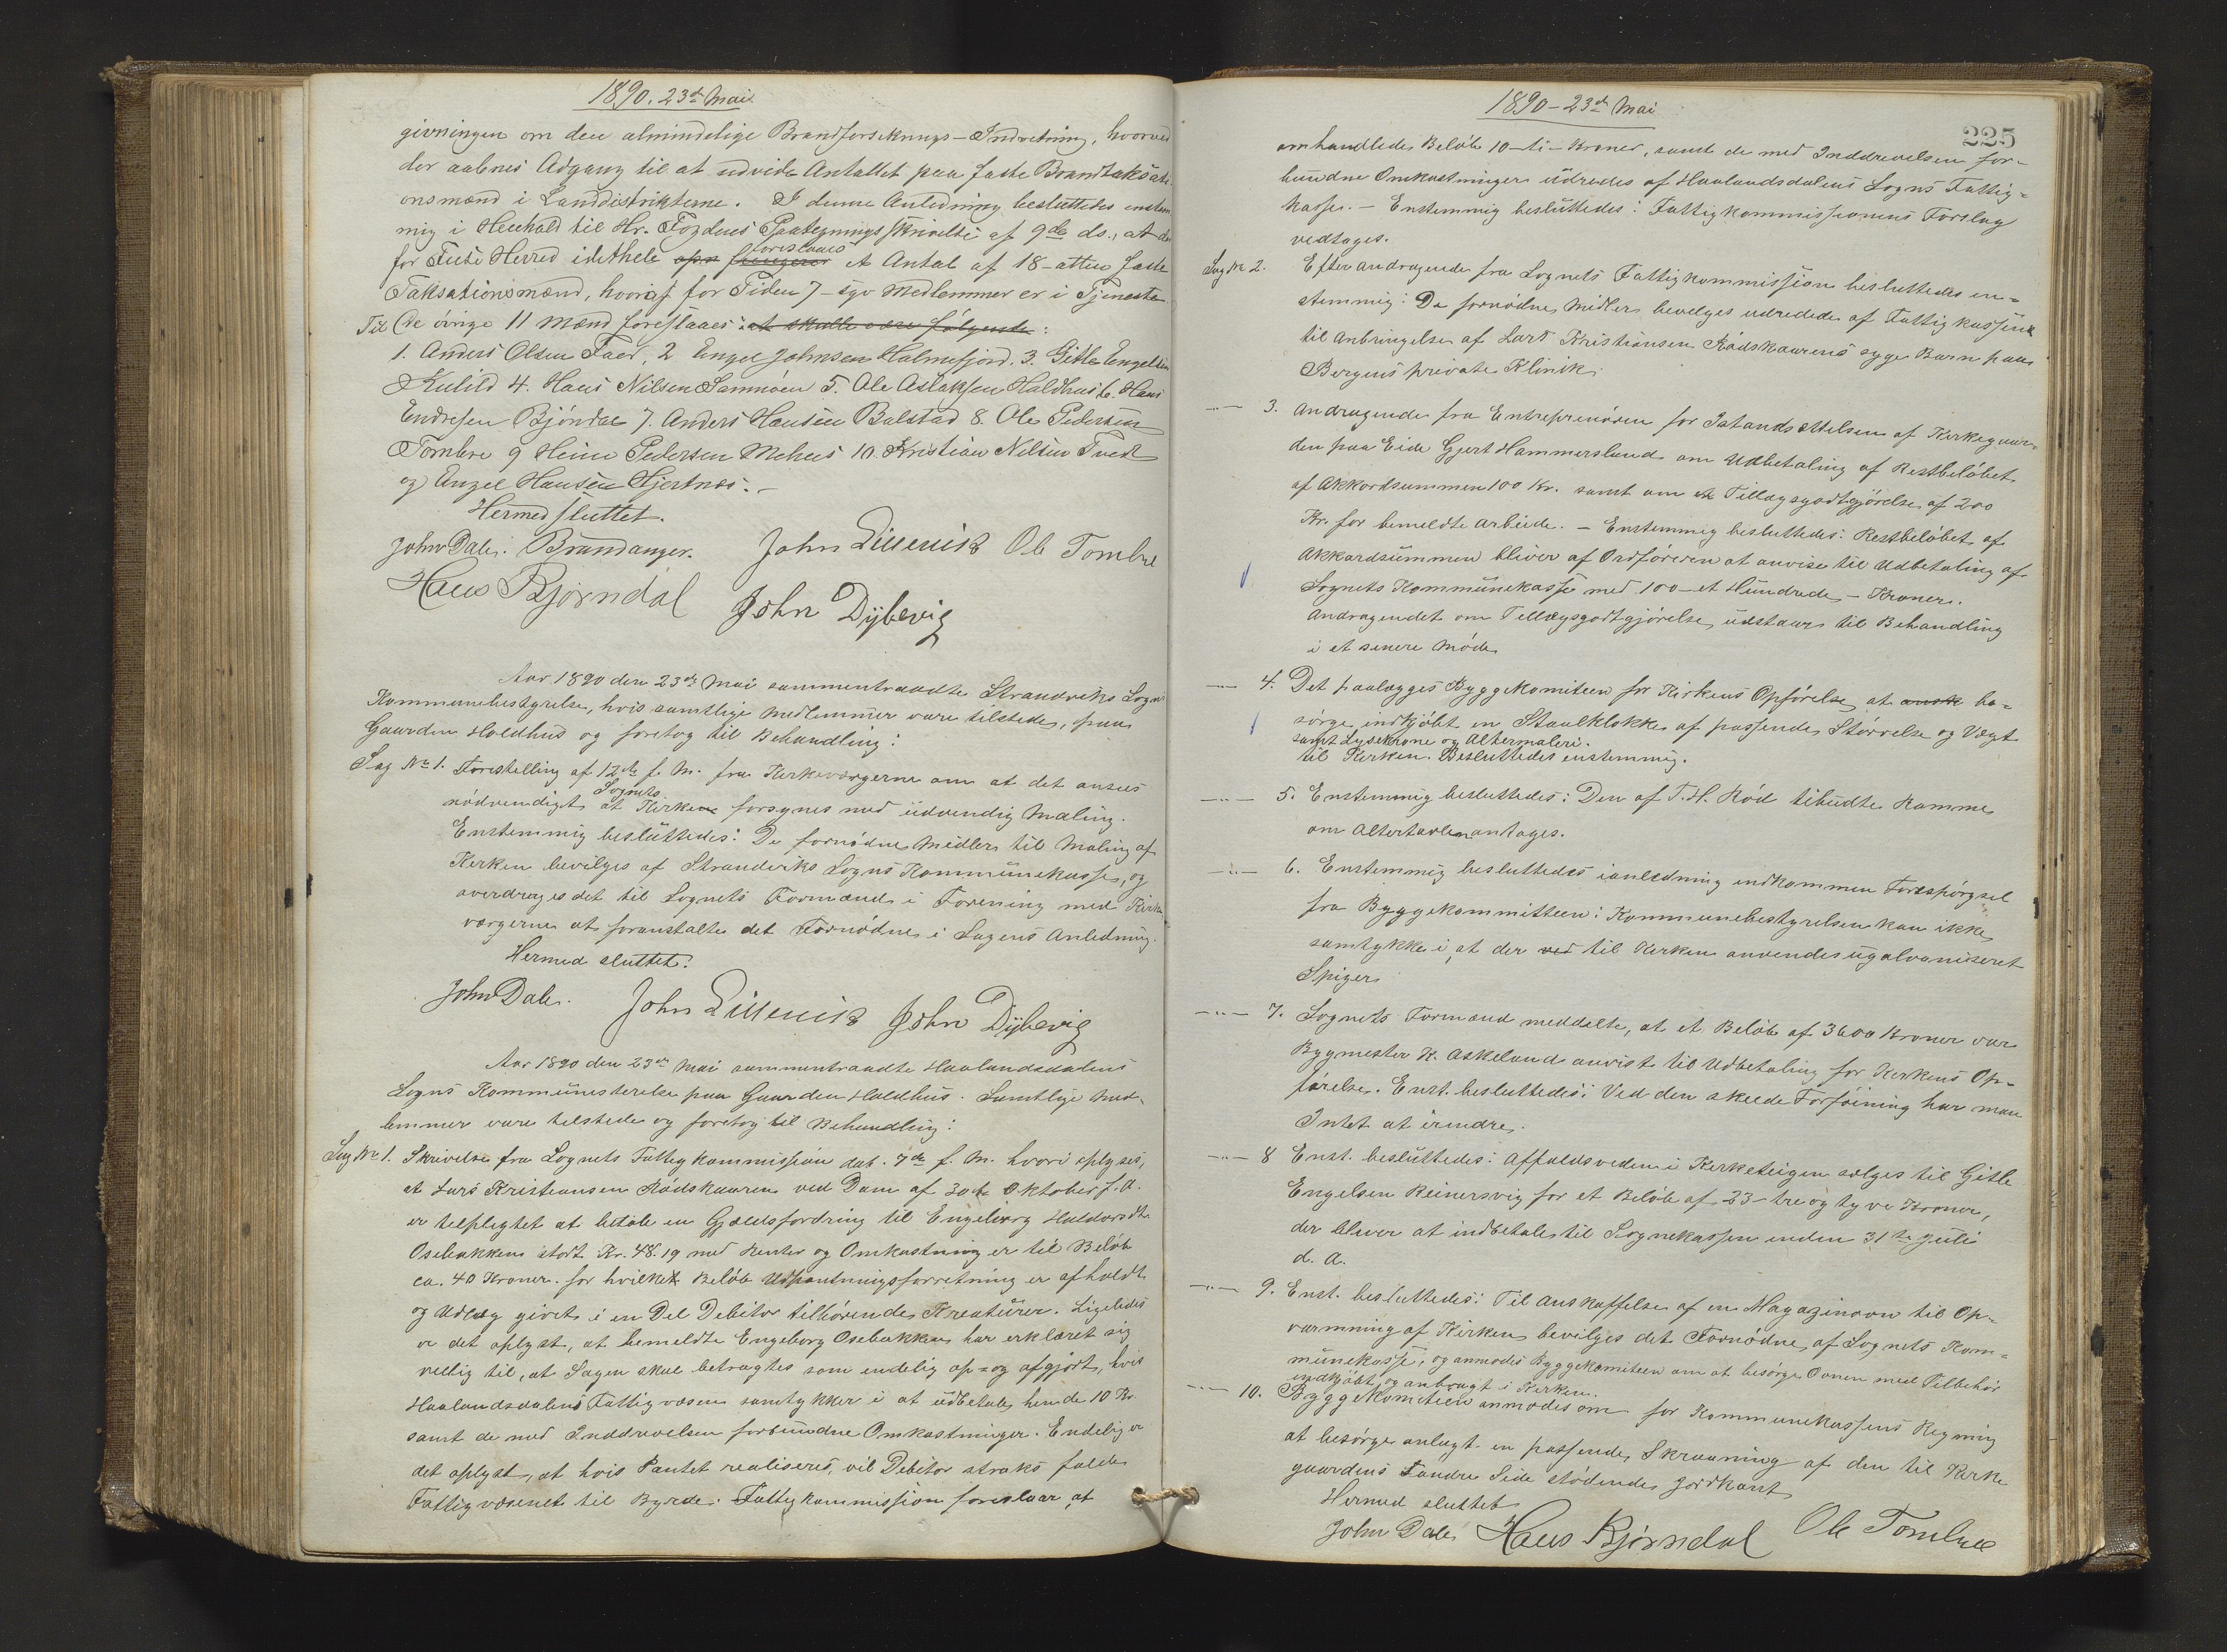 1890. 23de Mai
givningen om den almindelige Brandforsikrings-Indretning, hvorved
der aabnes Adgang til at udvide Antallet paa faste Brandtaksati-
onsmænd i Landdistrikterne. I denne Anledning besluttedes enstem
mig i Henhold til Hr. Fogdens Paategningsskrivelse af 9de ds., at der
for Fuse Herred idethele foreslaaes et Antal af 18-atten faste
Taksationsmænd, hvoraf for Tiden 7-syv Medlemmer er i Tjeneste
Til de övrige 11 Mænd foreslaaes: at skulle være følgende:
1. Anders Olsen Faer, 2 Engel Johnsen Holmefjord. 3. Gitle Engelsen
Kulild 4. Hans Nilsen Samnöen 5. Ole Aslaksen Haldhus 6. Hans
Endresen Bjöndal 7. Anders Hansen Bolstad 8. Ole Pedersen
Tombre 9 Heine Pedersen Mehus 10. Kristian Nilsen Tvedt
og Engel Hansen Hjertnæs. -
Hermed sluttet.
John Dale. Brandanger. John Lillevik Ole Tombre
Hans Bjørndal John Dybevig
Aar 1890 den 23de Mai sammentraadte Strandviks Sogns
Kommunebestyrelse, hvis samtlige Medlemmer vare tilstede, paa
Gaarden Holdhus og foretog til Behandling:
Sag No 1. Forestilling af 12te f. M. fra Kirkeværgerne om at det ansees
nödvendigt at Sognets Kirke forsynes med udvendig Maling.
Enstemmig besluttedes: De fornödne Midler til Maling af
Kirken bevilges af Strandviks Sogns Kommunekasse, og
overdrages det til Sognets Formænd i Forening med Kirke
værgerne at foranstalte det Fornödne i Sagens Anledning.
Hermed sluttet.
John Dale. John Lillevik John Dybevig
Aar 1890 den 23de Mai sammentraadte Haalandsdalens
Sogns Kommunesterelse paa Gaarden Holdhus. Samtlige Med-
lemmer vare tilstede og foretog til Behandling:
Sag No 1. Skrivelse fra Sognets Fattigkommission dat. 7de f. M. hvori oplyses,
at Lars Kristiansen Rödskauren ved Dom af 30te Oktober f. A.
er tilpligtet at betale en Gjældsfordring til Engeborg Haldorsdtr
Osebakken stort Kr. 48.19 med Renter og Omkostninger til Beløb
ca. 40 Kroner. for hvilket Beløb Udpantningsforretning er afholdt
og Udlæg givet i en Del Debitor tilhörende Kreaturer. Ligeledes
er det oplyst, at bemeldte Engeborg Osebakken har erklæret sig
villig til, at Sagen skal betragtes som endelig op- og afgjort, hvis
Haalandsdalens Fattigvæsen samtykker i at udbetale hende 10 Kr.
samt de med Inddrivelsen forbundne Omkostninger. Endelig er
det oplyst, at hvis Pantet realiseres, vil Debitor straks falde
Fattigvæsenet til Byrde. Fattigkommission foreslaar, at
1890 - 23de Mai
225
omhandlede Beløb 10-ti-Kroner, samt de med Inddrivelsen for-
bundne Omkostninger udredes af Haalandsdalens Sogns Fattig-
kasse. - Enstemmig besluttedes: Fattigkommissionens Forslag
vedtages.
Sag No 2. Efter Andragende fra Sognets Fattigkommission besluttedes en-
stemmig: De fornödne Midler bevilges udredede af Fattigkassen
til Anbringelse af Lars Kristiansen Rödskaurens syge Barn paa
Bergens private Klinik.
-"- 3. Andragende fra Entreprenören for Istandsættelsen af Kirkegaar-
den paa Eide Gjert Hammersland om Udbetaling af Restbeløbet
af Akkordsummen 100 Kr. samt om et Tillægsgodtgjörelse af 200
Kr. for bemeldte Arbeide. - Enstemmig besluttedes: Restbeløbet af
Akkordsummen bliver af Ordföreren at anvise til Udbetaling af
Sognets Kommunekasse med 100-et Hundrede-Kroner.
Andragendet om Tillægsgodtgjörelse udstaar til Behandling
i et senere Möde
-"- 4. Det paalægges Byggekomiteen for Kirkens Opförelse at ansk be-
sörge indkjöbt en Staalklokke af passende Störrelse og Vægt
samt Lysekrone og Altermaleri.
til Kirken. Besluttedes enstemmig.
-"- 5. Enstemmig besluttedes: Den af T. H. Röd tilbudte Ramme
om Altertavlen antages.
-"- 6. Enstemmig besluttedes ianledning indkommen Forespörgsel
fra Byggekommitteen: Kommunebestyrelsen kan ikke
samtykke i, at der ved til Kirken anvendes ugalvaniseret
Spiger
-"- 7. Sognets Formænd meddelte, at et Beløb af 3600 Kroner var
Bygmester K. Askeland anvist til Udbetaling for Kirkens Op-
førelse. Enst. besluttedes: Ved den skeede Forföining har man
Intet at erindre.
-"- 8 Enst. besluttedes: Affaldsveden i Kirketeigen sælges til Gitle
Engelsen Reinersvig for et Beløb af 23-tre og tyve Kroner,
der bliver at indbetale til Sognekassen inden 31te Juli
d. A.
-"- 9. Enst. besluttedes: Til Anskaffelse af en Magazinovn til Op-
varmning af Kirken bevilges det Fornödne af Sognets Kom-
munekasse, og anmodes Byggekomiteen om at besörge Ovnen med Tilbehör
indkjöbt og anbragt i Kirken.
-"- 10. Byggekomiteen anmodes om for Kommunekassens Regning
at besörge anlagt en passende Skraaning af den til Kirke
gaardens söndre Side stödende Jordkant
Hermed sluttet
John Dale Hans Bjørndal Ole Tombre